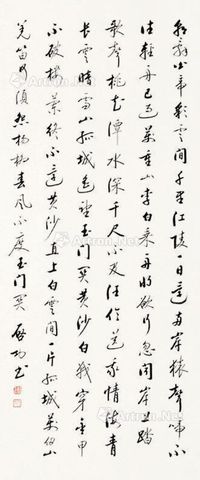 朝辞白帝彩云间千里江陵一日还两岸猿声啼不
住轻舟已过万重山李白乘舟将欲行忽闻岸上踏
歌声桃花潭水深千尺不及汪伦送我情海青
长云暗雪山孤城遥望玉门关黄沙百战穿金甲
不破楼兰终不还黄沙直上白云间一片孤城万仞山
羌笛何须怨杨柳春风不度玉门关 启功书